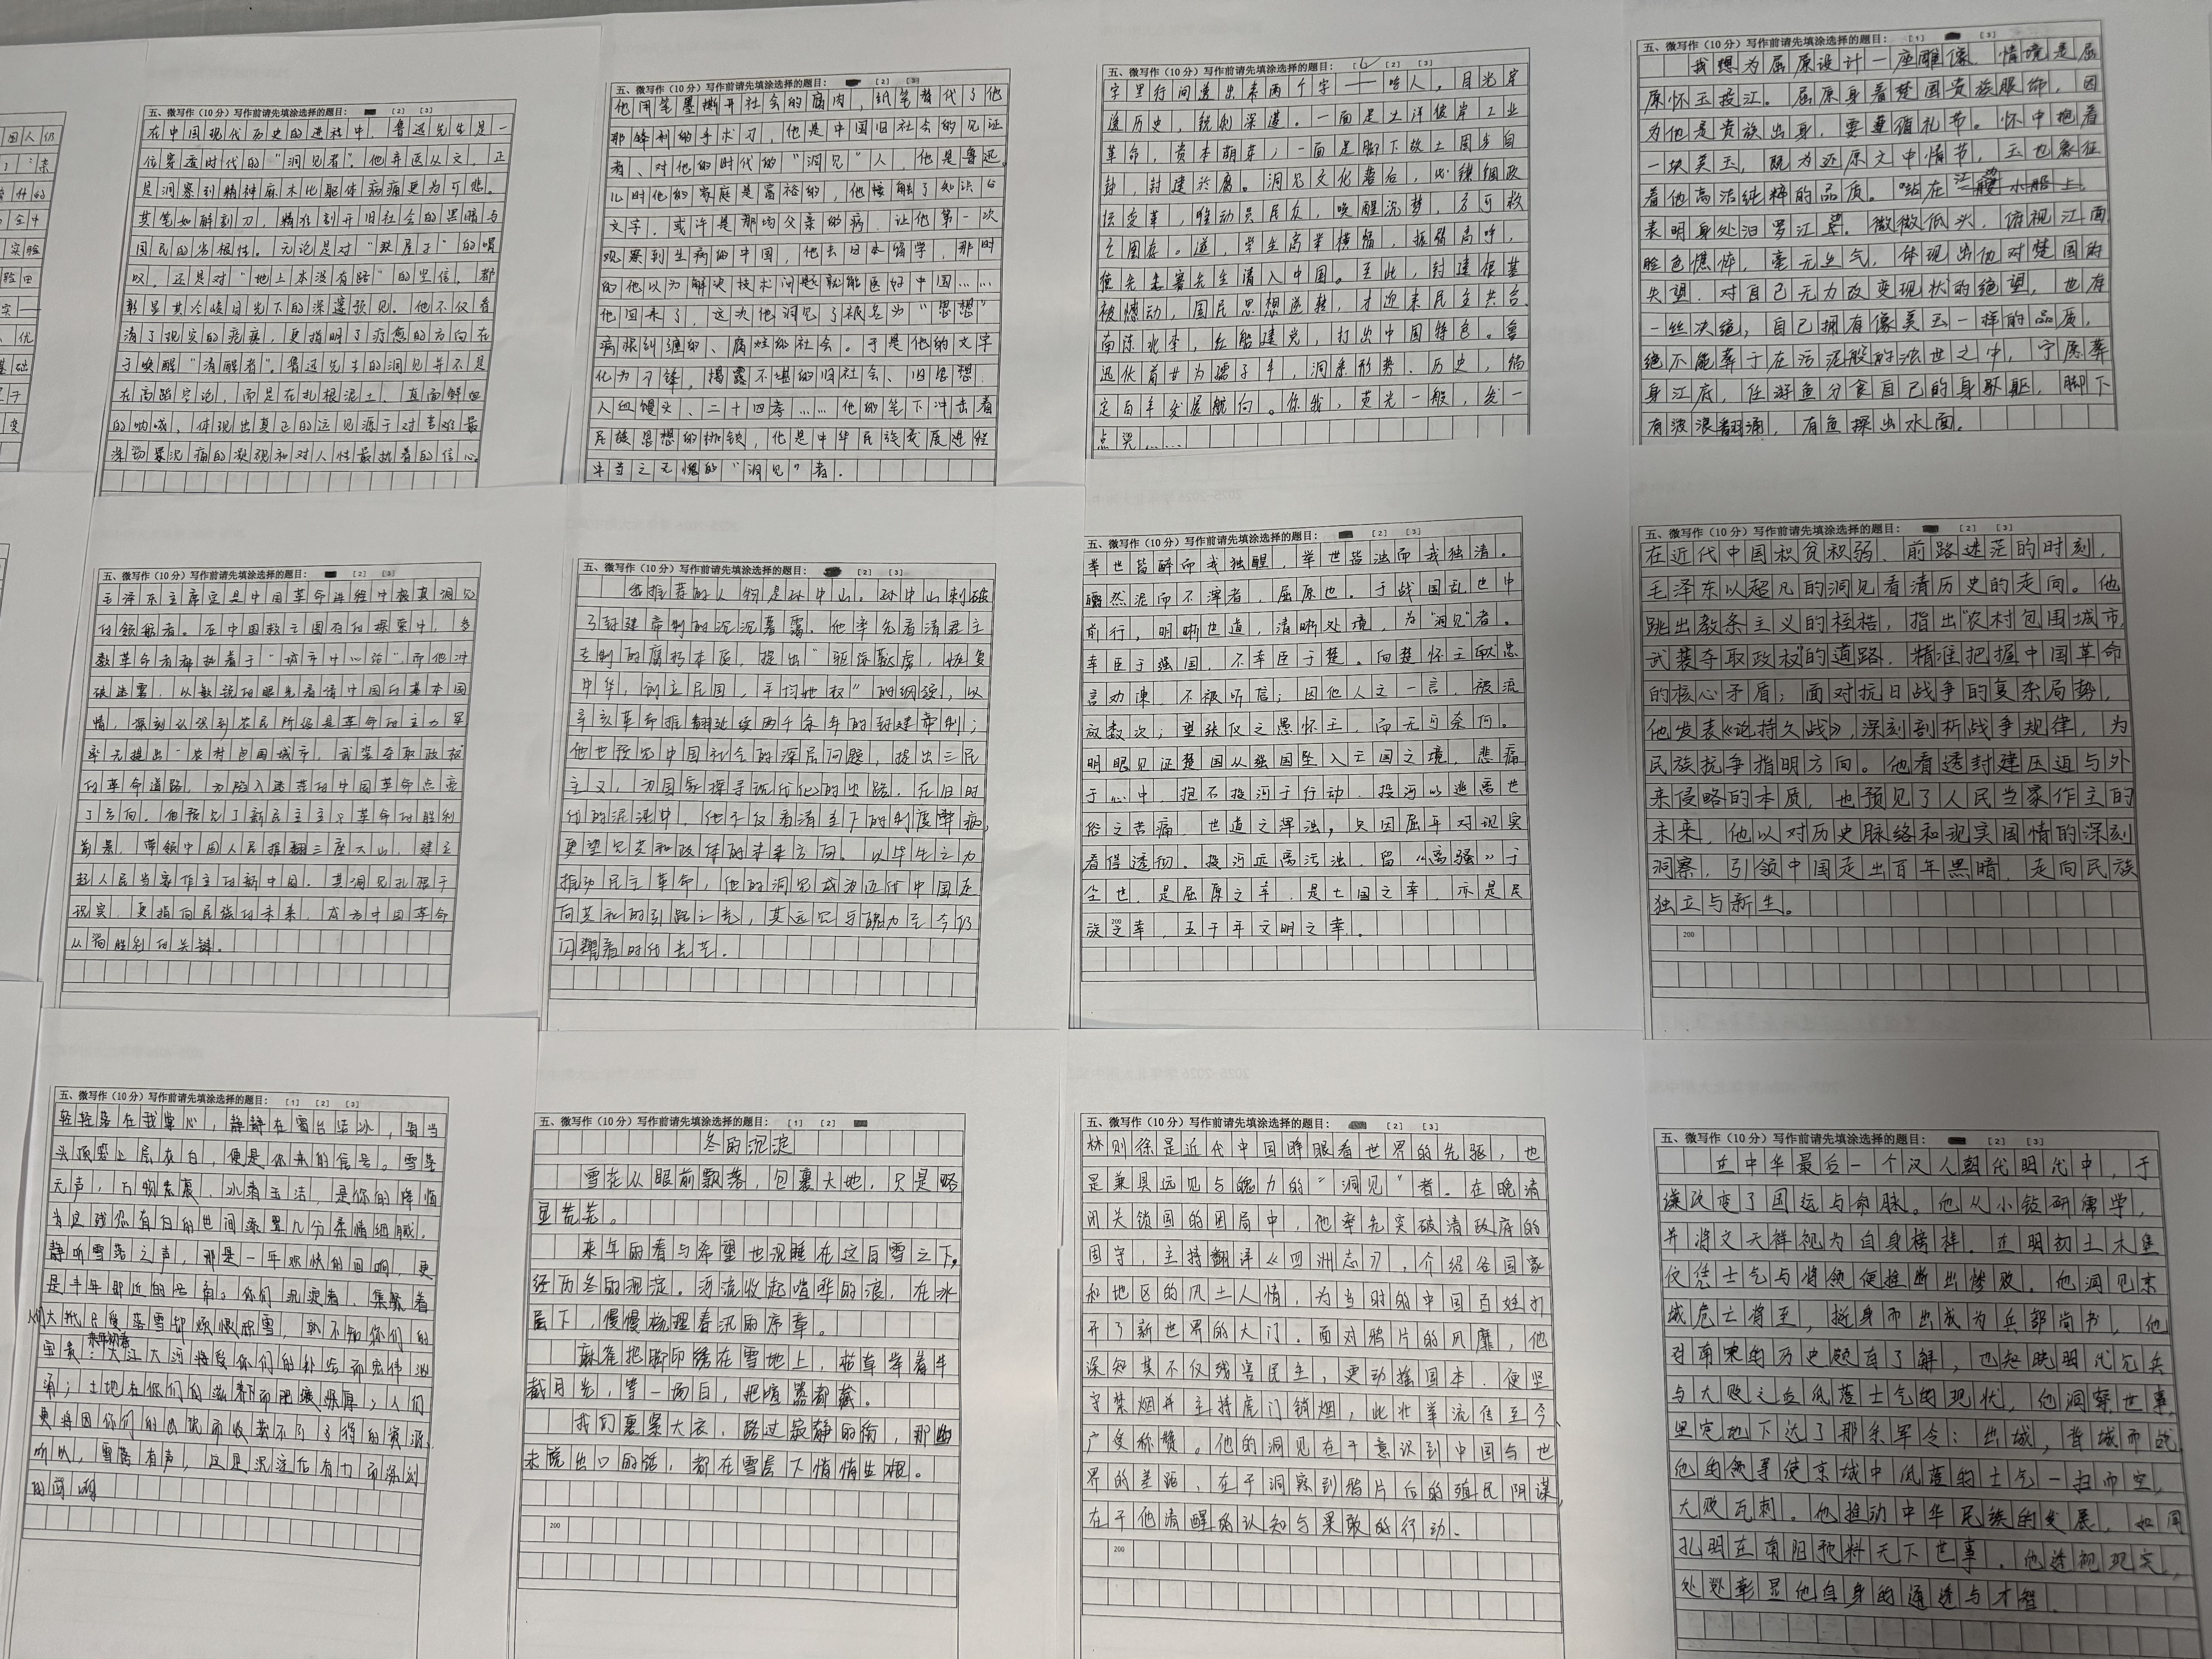 国人仍
五、微写作（10 分）写作前请先填涂选择的题目： [2] [3]
在中国现代历史的进程中，鲁迅先生是一
位穿透时代的“洞见者”。他弃医从文，正
是洞察到精神麻木比躯体病痛更为可悲。
其笔如解剖刀，精准剖开旧社会的黑暗与
国民的劣根性。无论是对“铁屋子”的喟
叹，还是对“地上本没有路”的坚信，都
彰显其冷峻目光下的深邃预见。他不仅看
清了现实的疮痍，更指明了疗愈的方向在
于唤醒“清醒者”。鲁迅先生的洞见并不是
在高蹈空论，而是在扎根泥土、直面鲜血
的呐喊，体现出真正的远见源于对苦难最
深沉痛的凝视和对人性最执着的信心。
五、微写作（10 分）写作前请先填涂选择的题目： [2] [3]
他用笔墨撕开社会的腐肉，纸笔替代了他
那锋利的手术刀，他是中国旧社会的见证
者、对他的时代的“洞见”人，他是鲁迅。
儿时他的家庭是富裕的，他接触了知识与
文字，或许是那场父亲的病，让他第一次
观察到生病的中国，他去日本留学，那时
的他以为解决技术问题就能医好中国……
他回来了，这次他洞见了被名为“思想”
病根纠缠的、腐烂的社会。于是他的文字
化为刀锋，揭露不堪的旧社会、旧思想，
人血馒头、二十四孝……他的笔下冲击着
民族思想的枷锁，他是中华民族发展进程
中当之无愧的“洞见”者。
五、微写作（10 分）写作前请先填涂选择的题目： [1] [2] [3]
字里行间透出来两个字——吃人。目光穿
透历史，锐利深邃。一面是大洋彼岸工业
革命，资本萌芽；一面是脚下故土固步自
封，封建於腐。洞见文化落后，必锁细政
坛变革，唯动员民众，唤醒沉梦，方可救
亡图存。遂，学生高举横幅，振臂高呼，
德先生赛先生涌入中国。至此，封建根基
被憾动，国民思想逆转，才迎来民主共合。
南陈北李，红船建党，打出中国特色。鲁
迅伏首甘为孺子牛，洞悉形势、历史，锚
定百年发展航向。你我，荧光一般，发一
点光……
五、微写作（10 分）写作前请先填涂选择的题目： [1] [3]
我想为屈原设计一座雕像。情境是屈
原怀玉投江。屈原身着楚国贵族服饰，因
为他是贵族出身，要遵循礼节。怀中抱着
一块美玉，既为还原文中情节，玉也象征
着他高洁纯粹的品质。站在江边小船上，
表明身处汨罗江旁。微微低头，俯视江面
脸色憔悴，毫无生气，体现出他对楚国的
失望，对自己无力改变现状的绝望，也有
一丝决绝，自己拥有像美玉一样的品质，
绝不能葬于在污泥般的浊世之中，宁愿葬
身江底，任游鱼分食自己的身躯，脚下
有波浪翻涌，有鱼探出水面。
五、微写作（10 分）写作前请先填涂选择的题目： [2] [3]
毛泽东主席定是中国革命进程中极具洞见
的领航者。在中国救亡图存的探索中，多
数革命者都执着于“城市中心论”，而他冲
破迷雾，以敏锐的眼光看清中国的基本国
情，深刻认识到农民阶级是革命的主力军
率先提出“农村包围城市，武装夺取政权”
的革命道路，为陷入迷茫的中国革命点亮
了方向。他预见了新民主主义革命的胜利
前景，带领中国人民推翻三座大山，建立
起人民当家作主的新中国，其洞见扎根于
现实，更指向民族的未来，成为中国革命
从而胜利的关键。
五、微写作（10 分）写作前请先填涂选择的题目： [2] [3]
我推荐的人物是孙中山。孙中山刺破
了封建帝制的沉沉暮霭，他率先看清君主
专制的腐朽本质，提出“驱除鞑虏，恢复
中华，创立民国，平均地权”的纲领，以
辛亥革命推翻延续两千余年的封建帝制；
他也预见中国社会的深层问题，提出三民
主义，为国家探寻现代化的出路。在旧时
代的泥沼中，他不仅看清当下的制度弊病，
更望见共和政体的未来方向。以毕生之力
推动民主革命，他的洞见成为近代中国走
向共和的引路之光，其远见与魄力至今仍
闪耀着时代光芒。
五、微写作（10 分）写作前请先填涂选择的题目： [2] [3]
举世皆醉而我独醒，举世皆浊而我独清。
皭然泥而不滓者，屈原也。于战国乱世中
前行，明晰世道，清晰处境，为“洞见”者。
幸臣于强国，不幸臣于楚。向楚怀王献忠
言劝谏，不被听信；因他人之一言，被流
放数次；望张仪之愚怀王，而无可奈何。
明眼见证楚国从强国坠入亡国之境，悲痛
于心中，抱石投河于行动，投河以逃离世
俗之苦痛，世道之浑浊，只因屈平对现实
看得透彻，投河远离污浊，留《离骚》于
尘世，是屈原之幸，是七国之幸，亦是民
族之幸，五千年文明之幸。
200
五、微写作（10 分）写作前请先填涂选择的题目： [2] [3]
在近代中国积贫积弱、前路迷茫的时刻，
毛泽东以超凡的洞见看清历史的走向。他
跳出教条主义的桎梏，指出“农村包围城市，
武装夺取政权”的道路，精准把握中国革命
的核心矛盾；面对抗日战争的复杂局势，
他发表《论持久战》，深刻剖析战争规律，为
民族抗争指明方向。他看透封建压迫与外
来侵略的本质，也预见了人民当家作主的
未来，他以对历史脉络和现实国情的深刻
洞察，引领中国走出百年黑暗，走向民族
独立与新生。
200
五、微写作（10 分）写作前请先填涂选择的题目： [1] [2] [3]
轻轻落在我掌心，静静在窗台结冰，每当
头顶盛上层灰白，便是你来的信号。雪落
无声，万物素裹，冰清玉洁，是你的降临
为这残缺苍白的世间添置几分柔情细腻。
静听雪落之声，那是一年欢快的回响，更
是丰年即近的号角。你们沉淀着、集聚着
人们大抵只爱落雪却烦恨积雪，孰不知你们的
宝贵：来年初春大江大河将受你们的补给而宏伟汹
涌；土地在你们的滋养下而肥壤绵厚；人们
更将因你们的出现而收获不可多得的资源。
所以，雪落有声，这是沉淀后有力而深刻
的回响
五、微写作（10 分）写作前请先填涂选择的题目： [1] [2]
冬的沉淀
雪花从眼前飘落，包裹大地，只是略
显荒芜。
来年的春与希望也沉睡在这白雪之下。
经历冬的沉淀。河流收起喧哗的浪，在冰
层下，慢慢梳理春汛的序章。
麻雀把脚印绣在雪地上，枯草举着半
截月光，等一场白，把喧嚣都藏。
我们裹紧大衣，路过寂静的街，那些
未说出口的话，都在雪层下悄悄生根。
200
五、微写作（10 分）写作前请先填涂选择的题目： [2] [3]
林则徐是近代中国睁眼看世界的先驱，也
是兼具远见与魄力的“洞见”者。在晚清
闭关锁国的困局中，他率先突破清政府的
固守，主持翻译《四洲志》，介绍各国家
和地区的风土人情，为当时的中国百姓打
开了新世界的大门。面对鸦片的风靡，他
深知其不仅残害民生，更动摇国本，便坚
守禁烟并主持虎门销烟，此壮举流传至今、
广受称赞。他的洞见在于意识到中国与世
界的差距，在于洞察到鸦片后的殖民阴谋，
在于他清醒的认知与果敢的行动。
200
五、微写作（10 分）写作前请先填涂选择的题目： [2] [3]
在中华最后一个汉人朝代明代中，于
谦改变了国运与命脉。他从小钻研儒学，
并将文天祥视为自身榜样，在明初土木堡
仅凭士气与将领便推断出惨败。他洞见京
城危亡将至，挺身而出成为兵部尚书，他
对南宋的历史颇有了解，也知晓明代冗兵
与大败之血低落士气的现状，他洞察世事，
坚定地下达了那条军令：出城，背城而战
他的领导使京城中低落的士气一扫而空，
大败瓦剌。他推动中华民族的发展，如同
孔明在南阳预料天下世事，他透视现实，
处处彰显他自身的通透与才智。